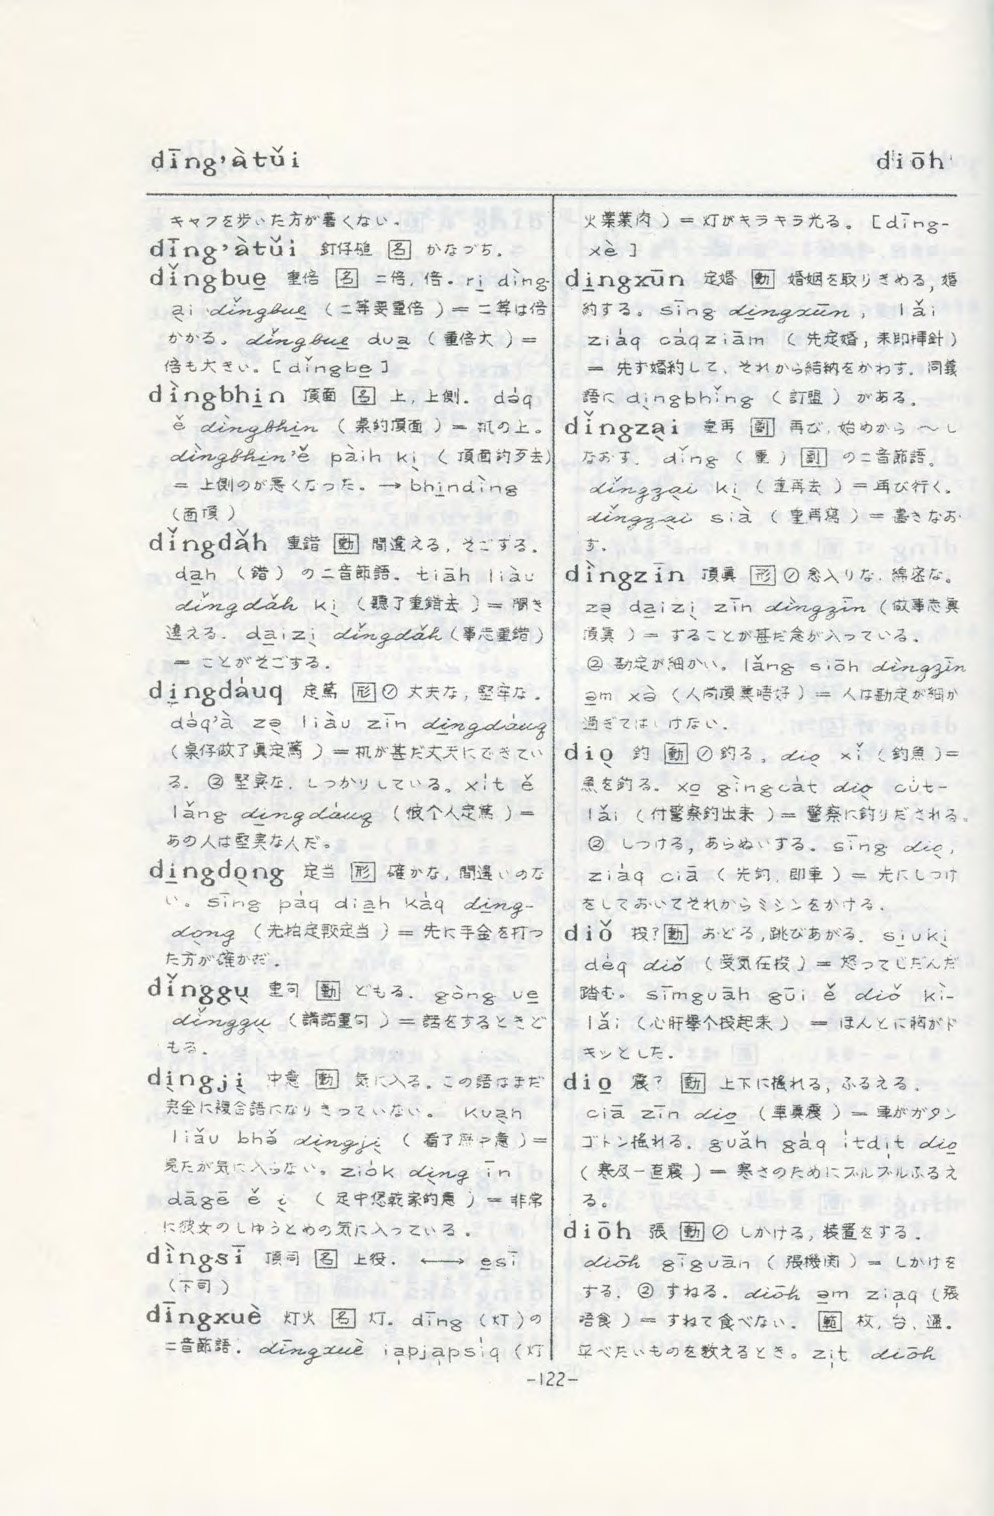 dīng'àtǔi
diōh
キャフを歩いた方が暑くない.
dīng'àtǔi 釘仔槌 [名] かなづち.
dǐngbue̱ 重倍 [名] 二倍,倍. ri̱ dìng
a̱i dǐngbue̱ (二等要重倍) = 二等は倍
かかる。 dǐngbue̱ dua̱ (重倍大) =
倍も大きい。[dǐngbe̱]
dìngbhi̱n 頂面 [名] 上,上側. dóq
ě dìngbhi̱n (桌的頂面) = 机の上。
dìngbhi̱n'ě pàih ki̖ (頂面的歹去)
= 上側のが悪くなった。→ bhi̱ndìng
(面頂)
dǐngdǎh 重錯 [動] 間違える,そごする.
da̱h (錯) の二音節語. tiāh liàu
dǐngdǎh ki̖ (聽了重錯去) = 聞き
違える. da̱izi̖ dǐngdǎh (事志重錯)
= ことがそごする.
di̱ngdáuq 定篤 [形] ① 丈夫な,堅牢な.
dóq'à zo̖ liàu zīn di̱ngdáuq
(桌仔做了真定篤) = 机が甚だ丈夫にできてい
る. ② 堅実な,しっかりしている。 xít ě
lǎng di̱ngdáuq (彼个人定篤) =
あの人は堅実な人だ。
di̱ngdo̖ng 定当 [形] 確かな,間違いのな
い。 sīng páq dia̱h káq di̱ng-
do̖ng (先拍定較定当) = 先に手金を打っ
た方が確かだ.
dǐnggu̖ 重句 [動] どもる. gòng ue̱
dǐnggu̖ (講話重句) = 話をするときど
もる.
di̖ngji̖ 中意 [動] 気に入る。この語はまだ
完全に複合語になりきっていない。 kua̖h
liàu bhǒ di̖ngji̖ (看了無中意) =
見たが気に入らない。 ziók di̖ng īn
dāgē ě i̖ (足中您乾家的意) = 非常
に彼女のしゅうとめの気に入っている.
dìngsī 頂司 [名] 上役. ←→ e̱sī
(下司)
dīngxuè 灯火 [名] 灯. dīng (灯)の
二音節語. dīngxuè ia̍pja̍psi̍q (灯
火葉葉肉) = 灯がキラキラ光る。[dīng-
xè]
di̱ngxūn 定婚 [動] 婚姻を取りきめる,婚
約する. sīng di̱ngxūn, lǎi
ziáq cáqziām (先定婚,来即挿針)
= 先ず婚約して,それから結納をかわす. 同義
語に di̖ngbhǐng (訂盟) がある.
dǐngza̖i 重再 [副] 再び,始めから〜し
なおす. dǐng (重) [副] の二音節語.
dǐngza̖i ki̖ (重再去) = 再び行く.
dǐngza̖i sià (重再寫) = 書きなお
す.
dìngzīn 頂真 [形] ① 念入りな,綿密な。
zo̖ da̱izi̖ zīn dìngzīn (做事志真
頂真) = することが甚だ念が入っている.
② 勘定が細かい. lǎng siōh dìngzīn
a̱m xò (人尚頂真唔好) = 人は勘定が細か
過ぎてはいけない.
dio̖ 釣 [動] ① 釣る。 dio̖ xǐ (釣魚) =
魚を釣る. xo̱ gìngcát dio̖ cút-
lǎi (付警察釣出来) = 警察に釣りだされる。
② しつける,あらぬいする。 sīng dio̖,
ziáq ciā (先釣,即車) = 先にしつけ
をしておいてそれからミシンをかける.
diǒ 投? [動] おどる,跳びあがる. siu̱ki̖
déq diǒ (受気在投) = 怒ってじだんだ
踏む。 sīmguāh gūi ě diǒ ki̖-
lǎi (心肝擧个投起来) = ほんとに胸がド
キンとした.
dio̱ 震? [動] 上下に揺れる,ふるえる.
ciā zīn dio̱ (車真震) = 車がガタン
ゴトン揺れる. guǎh gáq i̍tdi̍t dio̱
(寒及一直震) = 寒さのためにブルブルふるえ
る。
diōh 張 [動] ① しかける,装置をする.
diōh gīguān (張機関) = しかけを
する. ② すねる. diōh a̱m zia̍q (張
唔食) = すねて食べない. [範] 枚,台,通.
平べたいものを数えるとき。 zi̍t diōh
-122-